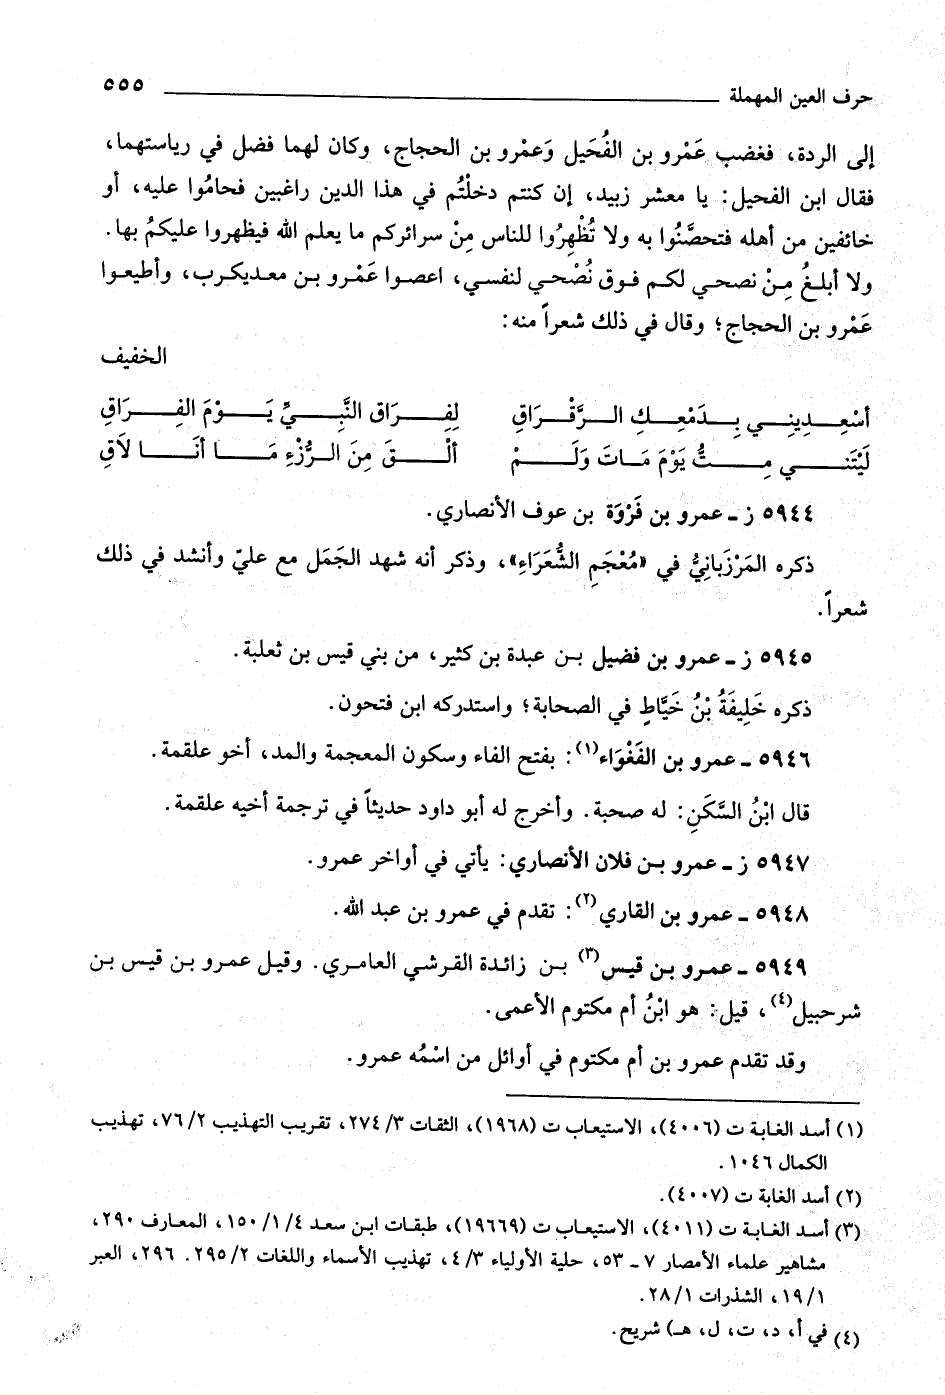 حرف العين المهملة ٥٥٥
إلى الردة، فغضب عَمْرو بن الفُحَيل وَعمْرو بن الحجاج، وكان لهما فضل في رياستهما،
فقال ابن الفحيل: يا معشر زبيد، إن كنتم دخلْتُم في هذا الدين راغبين فحامُوا عليه، أو
خائفين من أهله فتحصَّنُوا به ولا تُظْهِرُوا للناس مِنْ سرائركم ما يعلم الله فيظهروا عليكمُ بها.
ولا أبلغُ مِنْ نصحي لكم فوق نُصْحي لنفسي، اعصوا عَمْرو بن معديكرب، وأطيعوا
عَمْرو بن الحجاج؛ وقال في ذلك شعراً منه:
الخفيف
أسْعِدِينِي بِدَمْعِكِ الرَّقْرَاقِ لِفِرَاقِ النَّبِيِّ يَوْمَ الفِرَاقِ
لَيْتَنِي مِتُّ يَوْمَ مَاتَ وَلَمْ ألْقَ مِنَ الرُّزْءِ مَا أنَا لاَقِ
٥٩٤٤ ز ـ عمرو بن فَرْوَة بن عوف الأنصاري.
ذكره المَرْزَبانِيُّ في «مُعْجَمِ الشُّعَرَاءِ»، وذكر أنه شهد الجَمَل مع عليّ وأنشد في ذلك
شعراً.
٥٩٤٥ ز ـ عمرو بن فضيل بن عبدة بن كثير، من بني قيس بن ثعلبة.
ذكره خَلِيفَةُ بْنُ خَيَّاطٍ في الصحابة؛ واستدركه ابن فتحون.
٥٩٤٦ ـ عمرو بن الفَغْوَاء(١): بفتح الفاء وسكون المعجمة والمد، أخو علقمة.
قال ابْنُ السَّكَنِ: له صحبة. وأخرج له أبو داود حديثاً في ترجمة أخيه علقمة.
٥٩٤٧ ز ـ عمرو بن فلان الأنصاري: يأتي في أواخر عمرو.
٥٩٤٨ ـ عمرو بن القاري(٢): تقدم في عمرو بن عبد الله.
٥٩٤٩ ـ عمرو بن قيس(٣) بن زائدة القرشي العامري. وقيل عمرو بن قيس بن
شرحبيل(٤)، قيل: هو ابْنُ أم مكتوم الأعمى.
وقد تقدم عمرو بن أم مكتوم في أوائل من اسْمُه عمرو.
(١) أسد الغابة ت (٤٠٠٦)، الاستيعاب ت (١٩٦٨)، الثقات ٢٧٤/٣، تقريب التهذيب ٧٦/٢، تهذيب
الكمال ١٠٤٦.
(٢) أسد الغابة ت (٤٠٠٧).
(٣) أسد الغابة ت (٤٠١١)، الاستيعاب ت (١٩٦٦٩)، طبقات ابن سعد ١٥٠/١/٤، المعارف ٢٩٠،
مشاهير علماء الأمصار ٧ ـ ٥٣، حلية الأولياء ٤/٣، تهذيب الأسماء واللغات ٢٩٥/٢. ٢٩٦، العبر
١٩/١، الشذرات ٢٨/١.
(٤) في أ، د، ت، ل، هـ) شريح.